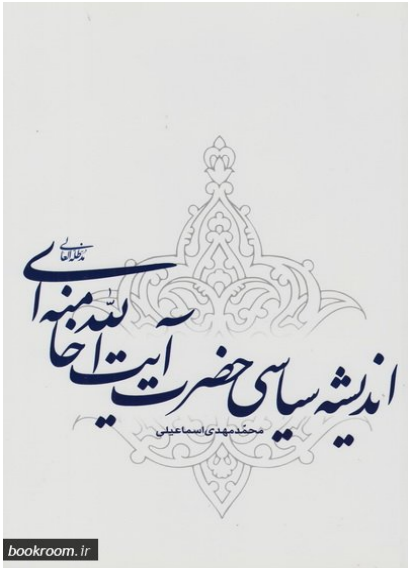 اندیشه سیاسی حضرت آیت الله خامنه ای
مدظله العالی
محمدمهدی اسماعیلی
bookroom.ir